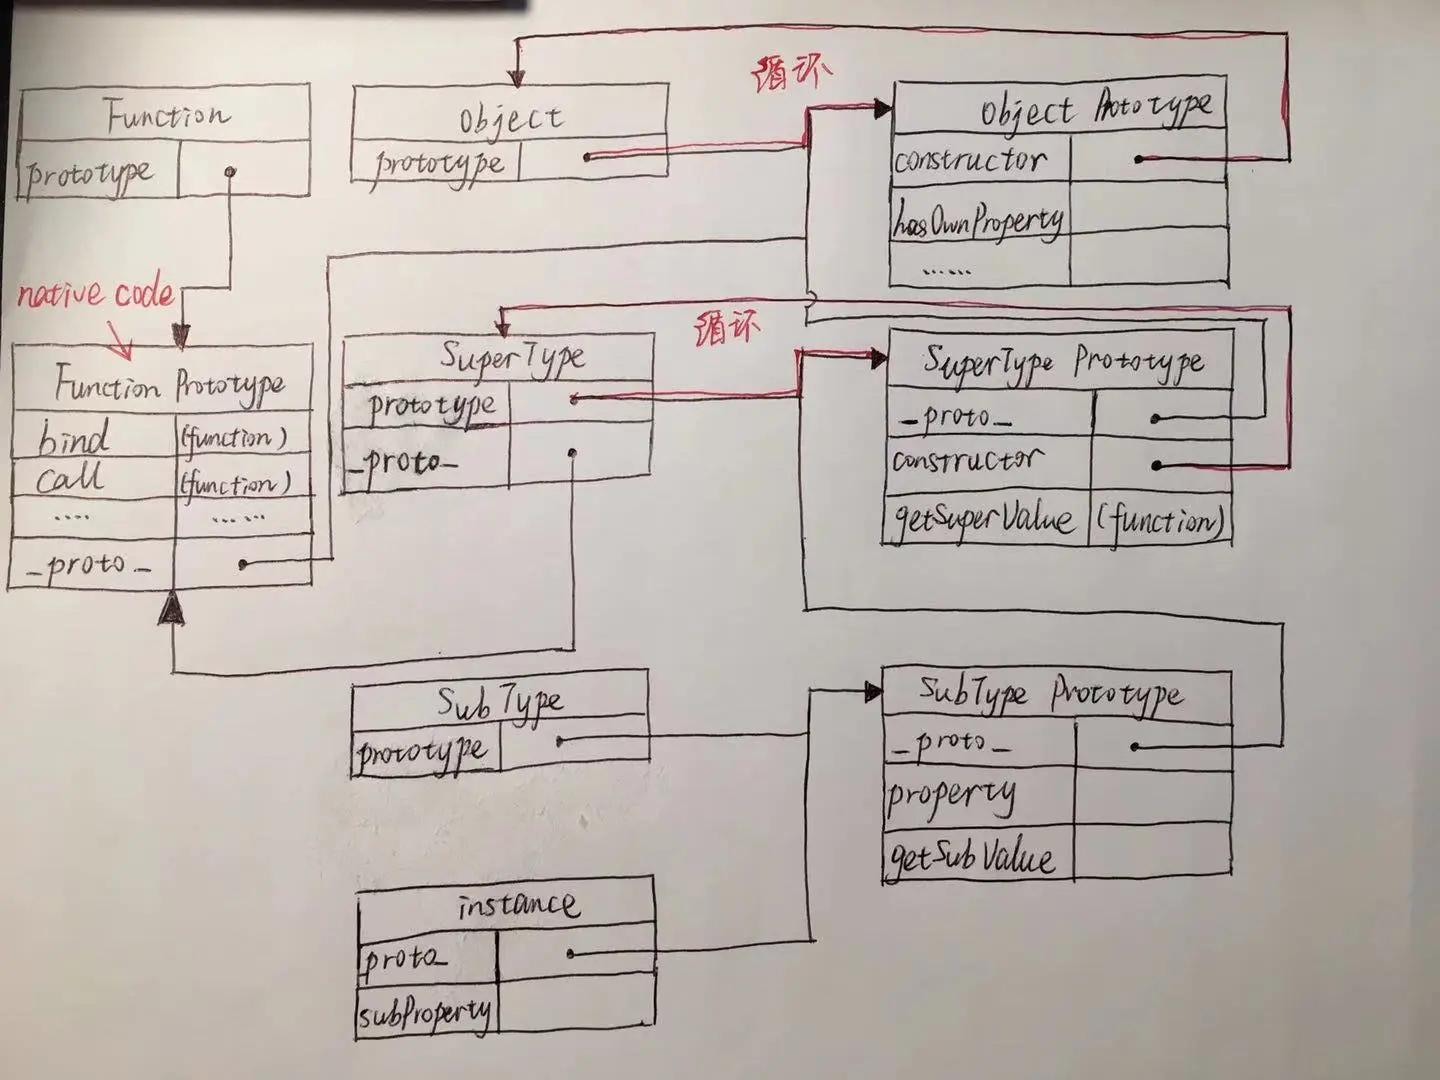 Function
prototype
native code
Function Prototype
bind (function)
call (function)
.... ......
_proto_
循环
Object
prototype
Object Prototype
constructor
hasOwnProperty
......
循环
SuperType
prototype
_proto_
SuperType Prototype
_proto_
constructor
getSuperValue (function)
SubType
prototype
SubType Prototype
_proto_
property
getSubValue
instance
proto_
subProperty